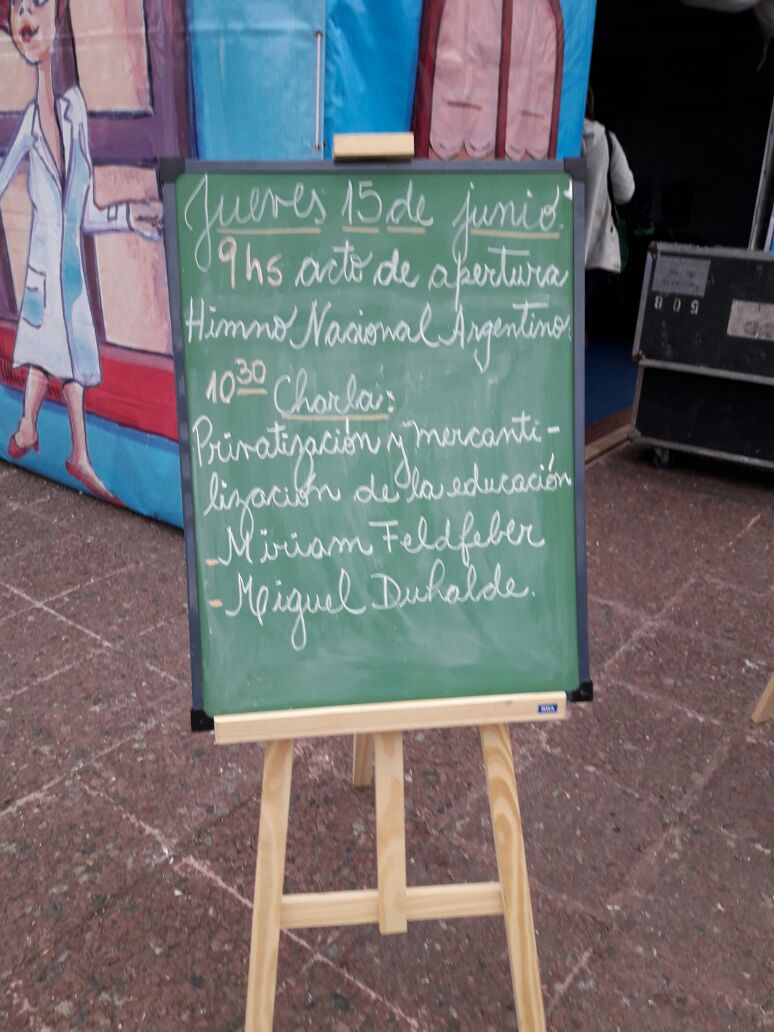 Jueves 15 de junio
9hs acto de apertura
Himno Nacional Argentino.
10 30 Charla:
Privatización y mercanti-
lización de la educación
- Miriam Feldfeber
- Miguel Duhalde.